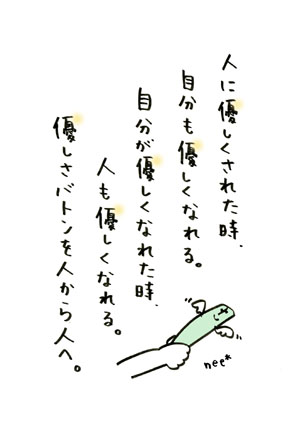 人に優しくされた時、
自分も優しくなれる。
自分が優しくなれた時、
人も優しくなれる。
優しさバトンを人から人へ。
nee*